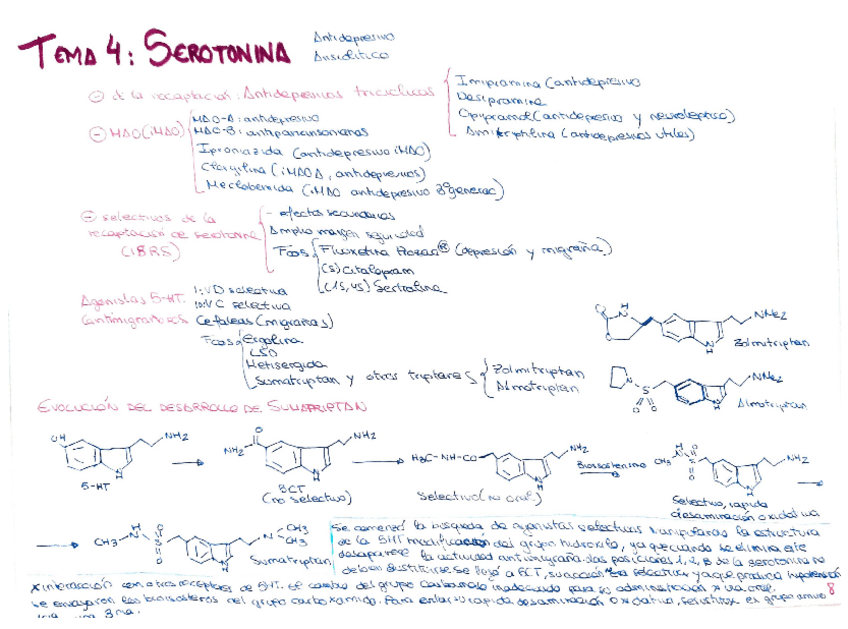 TEMA 4: SEROTONINA
Antidepresivo
Ansiolítico
⊖ de la recaptación: Antidepresivos tricíclicos
Imipramina (antidepresivo
Desipramina
Opipramol (antidepresivo y neuroléptico)
Amitriptilina (antidepresivos útiles)
⊖ MAO (iMAO)
MAO-A: antidepresivo
MAO-B: antiparkinsonianos
Iproniazida (antidepresivo iMAO)
Clorgilina (iMAOA, antidepresivos)
Meclobemida (iMAO antidepresivo 3º generac)
⊖ selectivos de la
recaptación de serotonina
(ISRS)
- efectos secundarios
Amplio margen seguridad
Fcos
Fluoxetina Prozac® (depresión y migraña)
(S) Citalopram
(1S,4S) Sertralina
Agonistas 5-HT.
1: VD selectiva
VC selectiva
(antimigrañosos
Cefaleas (migrañas)
Fcos
Ergolina
LSD
Metisergida
Sumatriptan y otros triptanes
Zolmitriptan
Almotriptan
O
N
H
O
NMe2
N
H
Zolmitriptan
N
S
O O
NMe2
N
H
Almotriptan
EVOLUCIÓN DEL DESARROLLO DE SUMATRIPTAN
OH
NH2
N
H
5-HT
NH2
O
NH2
N
H
(no selectivo)
H3C-NH-CO
NH2
N
H
Selectivo (no oral)
Bioisosterismo
CH3
H
N
S
O
O
NH2
N
H
Selectivo, rápida
desaminación oxidativa
CH3
H
N
S
O
O
N
CH3
CH3
N
H
Sumatriptan
Se comenzó la búsqueda de agonistas selectivos manipulando la estructura
de la 5HT modificación del grupo hidroxilo, ya que cuando se elimina este
desaparece la actividad antimigraña. Las posiciones 1, 2, de la serotonina no
deben sustituirse. Se llegó a su acción es selectiva ya que produce hipotensión
x interacción con otros receptores de 5HT. El cambio del grupo inadecuado para su administración x vía oral.
se ensayaron los bioisósteros del grupo carboxamido. Para enlentecer rápida desaminación oxidativa, se sustituye el grupo amino
8